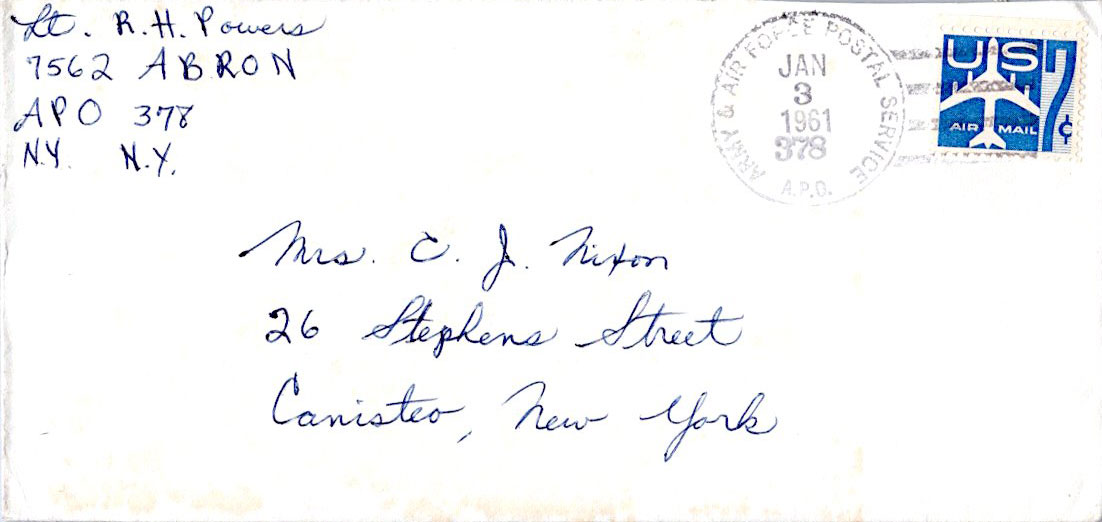 Lt. R.H. Powers
7562 ABRON
APO 378
N.Y. N.Y.
ARMY & AIR FORCE POSTAL SERVICE
JAN
3
1961
378
A.P.O.
US
7¢
AIR MAIL
Mrs. C. J. Nixon
26 Stephens Street
Canisteo, New York